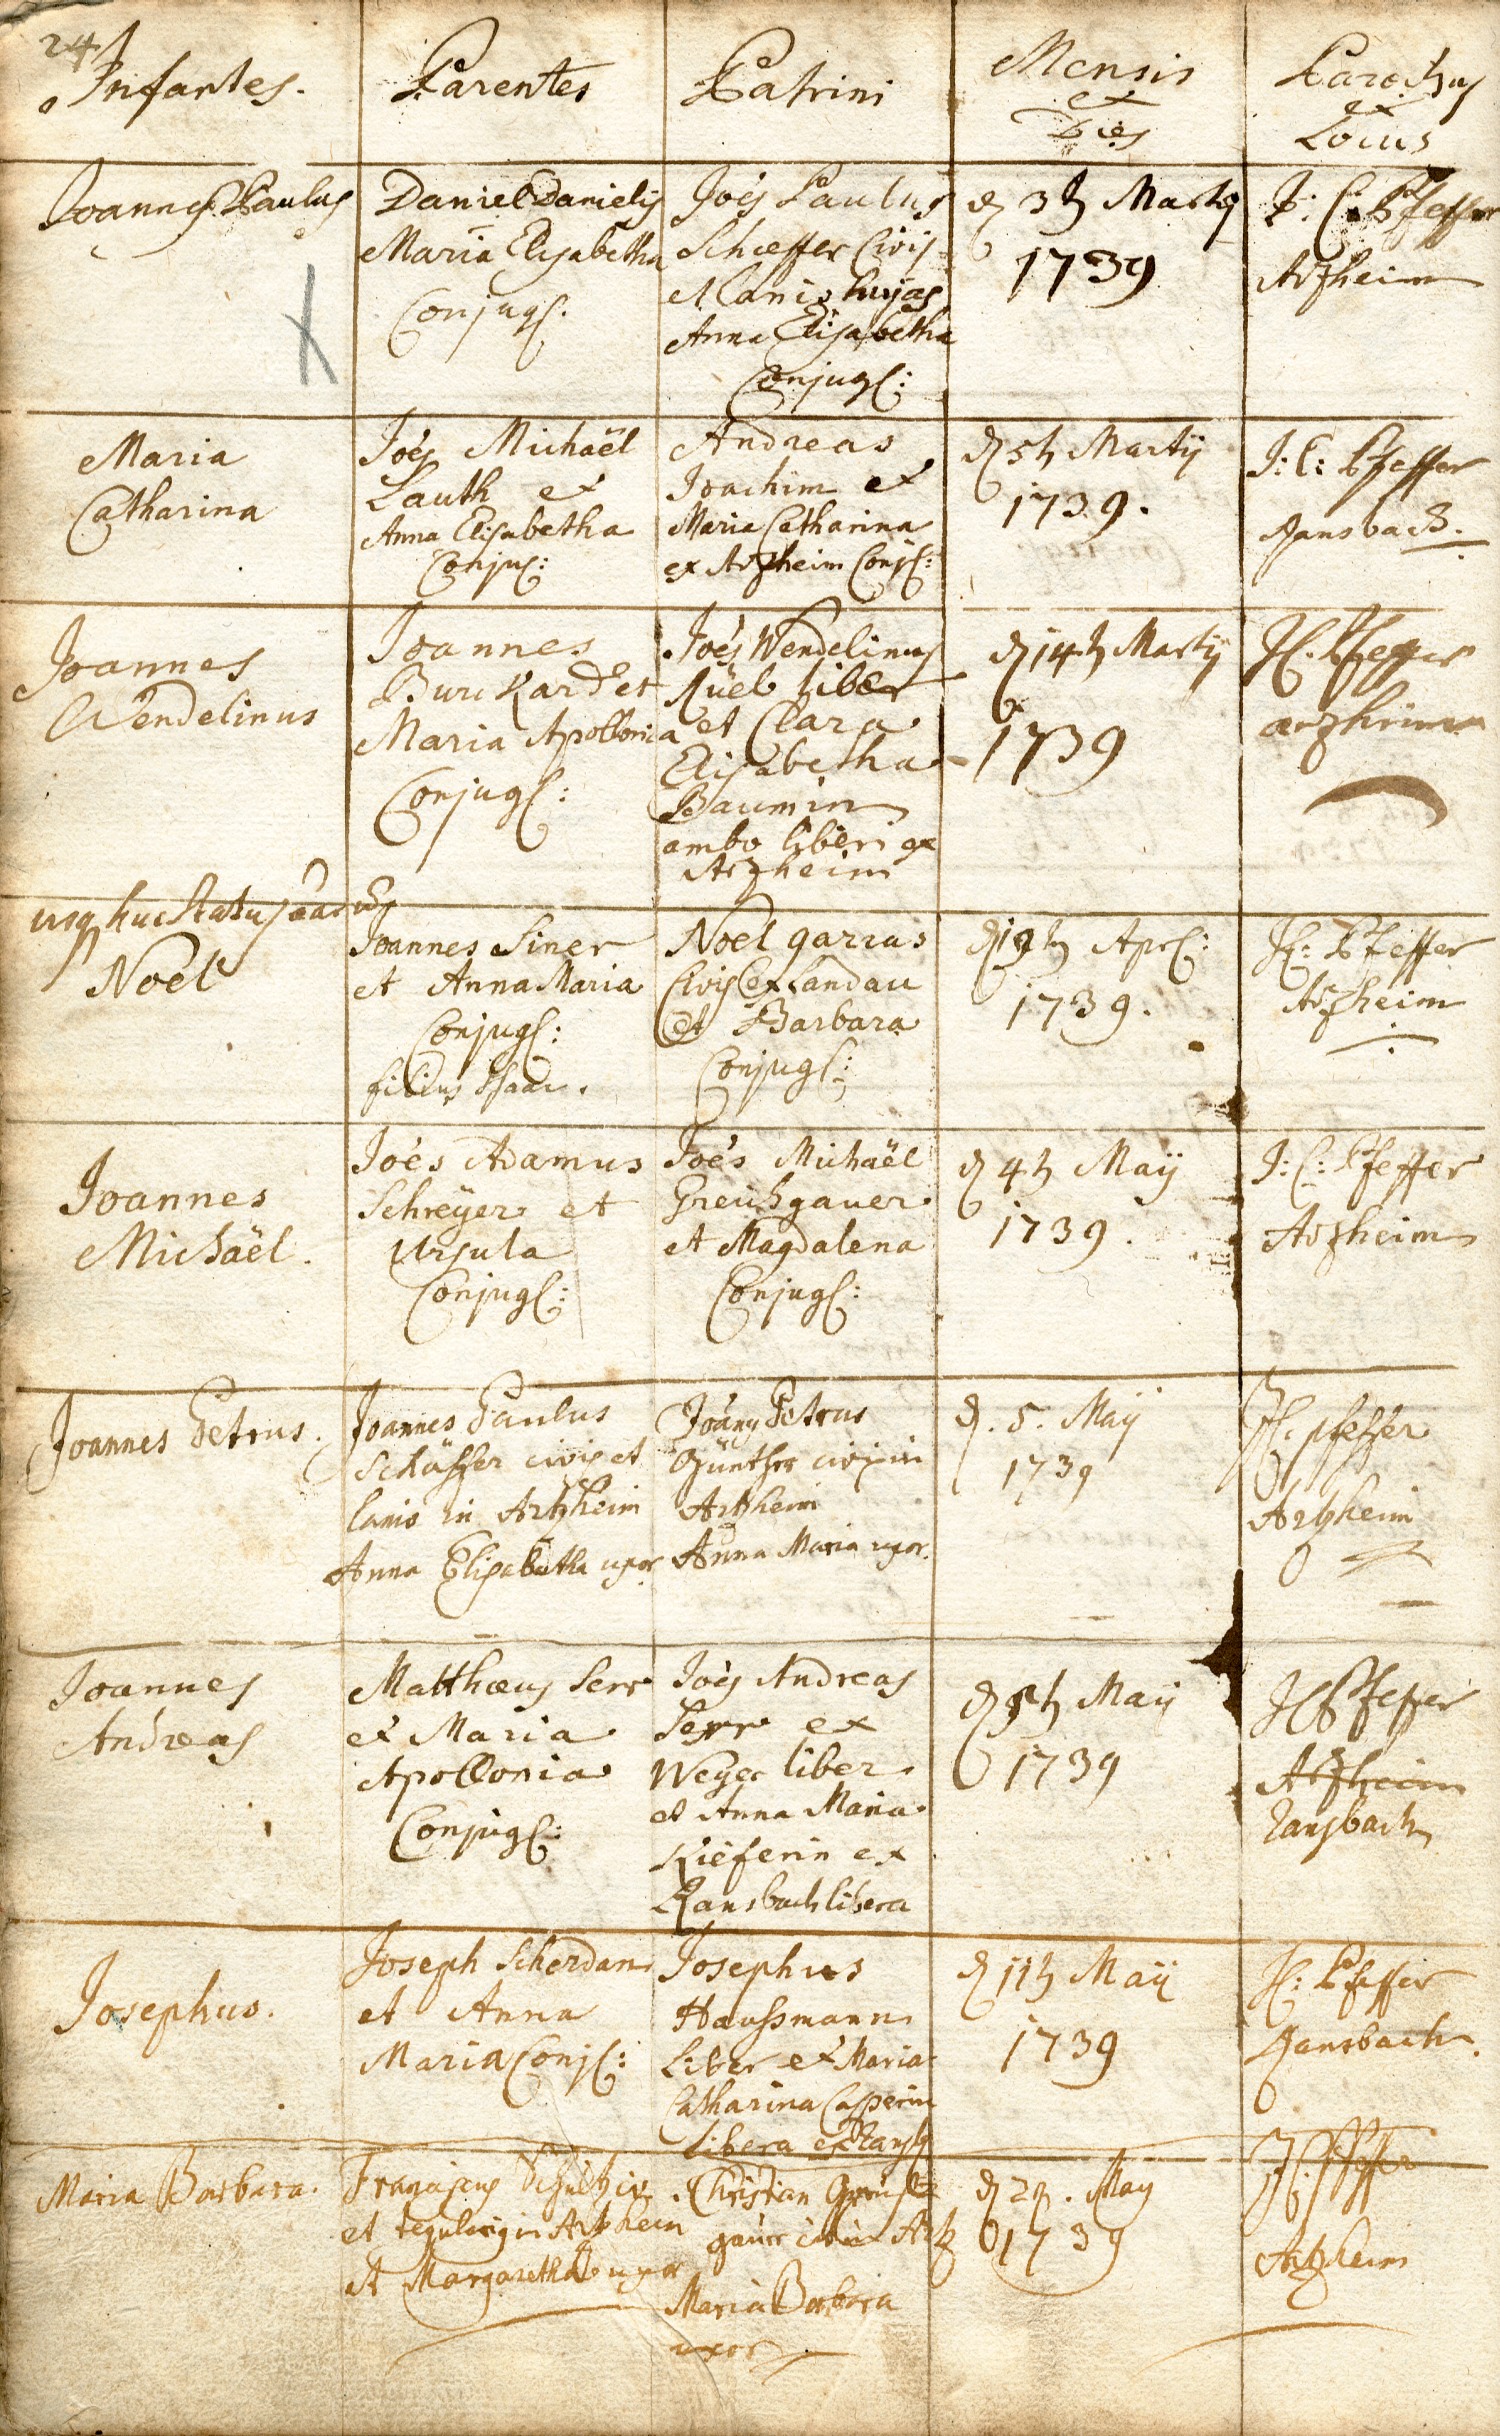 24
Infantes.
Parentes
Patrini
Mensis
et
Dies
Parochus
et
Locus
Joannes Paulus
Daniel Danielis
Maria Elisabetha
Conjug:
Joes Paulus
Schæffer Civis
et lanio hujas
Anna Elisabetha
Conjug:
d 3t Martij
1739
J: C. Pfeffer
Arzheim
Maria
Catharina
Joes Michaël
Lauth et
Anna Elisabetha
Conju:
Andreas
Joachim et
Maria Catharina
ex Arzheim Conj:
d 5t Martij
1739.
J: C: Pfeffer
Ransbach.
Joannes
Wendelinus
Joannes
Burckard et
Maria Apollonia
Conjug:
Joes Wendelinus
Rüeb liber
et Clara
Elisabetha
Baumin
ambo liberi ex
Arzheim
d 14t Martij
1739
JC. Pfeffer
arzheim
usq huc status
Noël
Joannes Siner
et Anna Maria
Conjug:
filius
Noël garras
Civis ex Landau
et Barbara
Conjug:
d 19t Apr:
1739.
JC: Pfeffer
Arzheim
Joannes
Michaël.
Joés Adamus
Schreÿer et
Ursula
Conjug:
Joés Michaël
Greüsgauer
et Magdalena
Conjug:
d 4t Maÿ
1739.
J: C: Pfeffer
Arzheim
Joannes Petrus.
Joannes Paulus
Schäffer civis et
lanio in Artzheim
Anna Elisabetha uxor
Joans Petrus
Günther civis in
Artzheim
Anna Maria uxor.
d. 5. Maÿ
1739
JC. pfeffer
Artzheim
Joannes
Andreas
Matthæus Serr
et Maria
Apollonia
Conjug:
Joés Andreas
Serr ex
Weyer liber
et Anna Maria
Kieferin ex
Ransbach libera
d 9t Maij
1739
JC Pfeffer
Arzheim
Ransbach
Josephus.
Joseph Scherdan
et Anna
Maria Conj:
Josephus
Haussmann
Liber et Maria
Catharina Casperin
Libera ex Ransb
d 11t Maij
1739
JC: Pfeffer
Ransbach.
Maria Barbara.
Franciscus
et in Artzheim
et Margaretha uxor
Christian
gauer Artz
Maria Barbara
uxor
d 29. May
1739
JC. Pfeffer
Artzheim